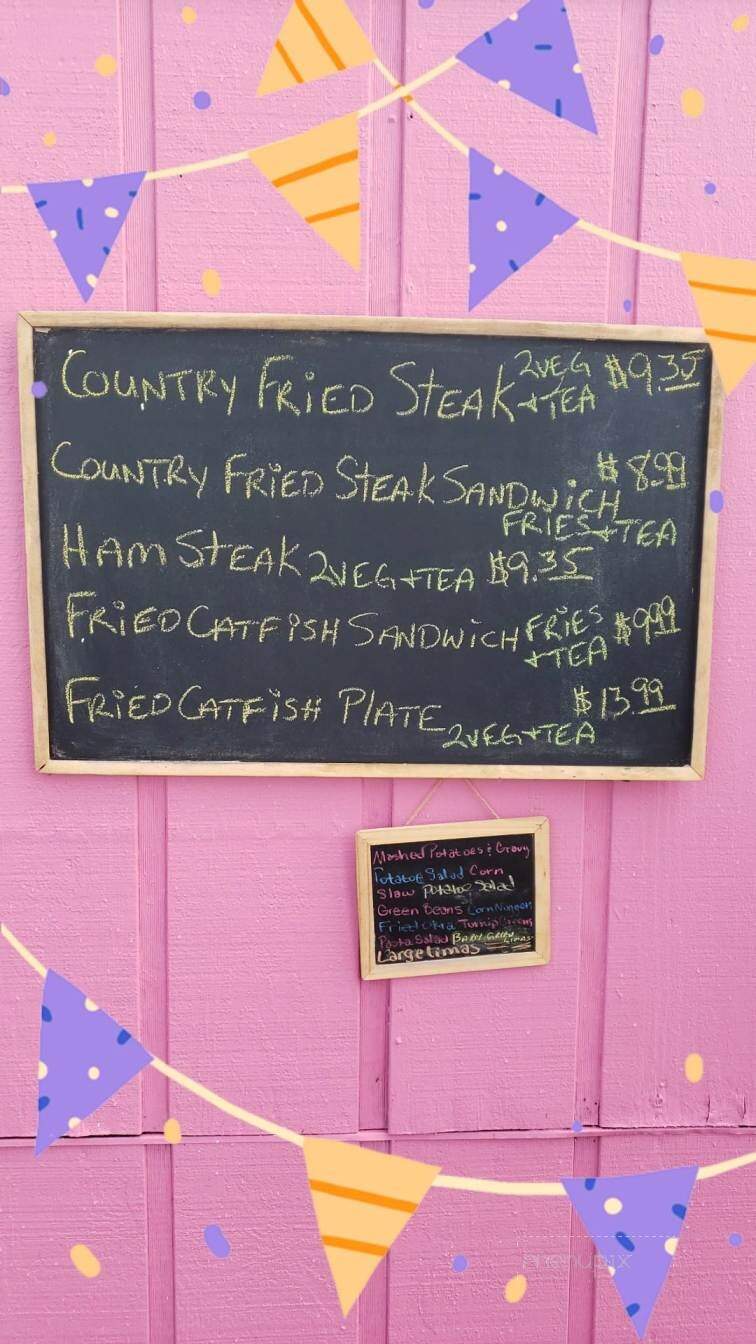 COUNTRY FRiED STEAK 2VEG +TEA $9.35
COUNTRY FRiED STEAK SANDWiCH $8.99
FRIES+TEA
HAM STEAK 2VEG+TEA $9.35
FRiED CATFiSH SANDWiCH FRiES +TEA $9.99
FRiED CATFiSH PLATE $13.99
2VEG+TEA
Mashed Potatoes & Gravy
Potatoe Salad Corn
Slaw Potatoe Salad
Green Beans Corn
Fried Okra Turnip Greens
Pasta Salad Baby Green Limas
Large limas
menupix